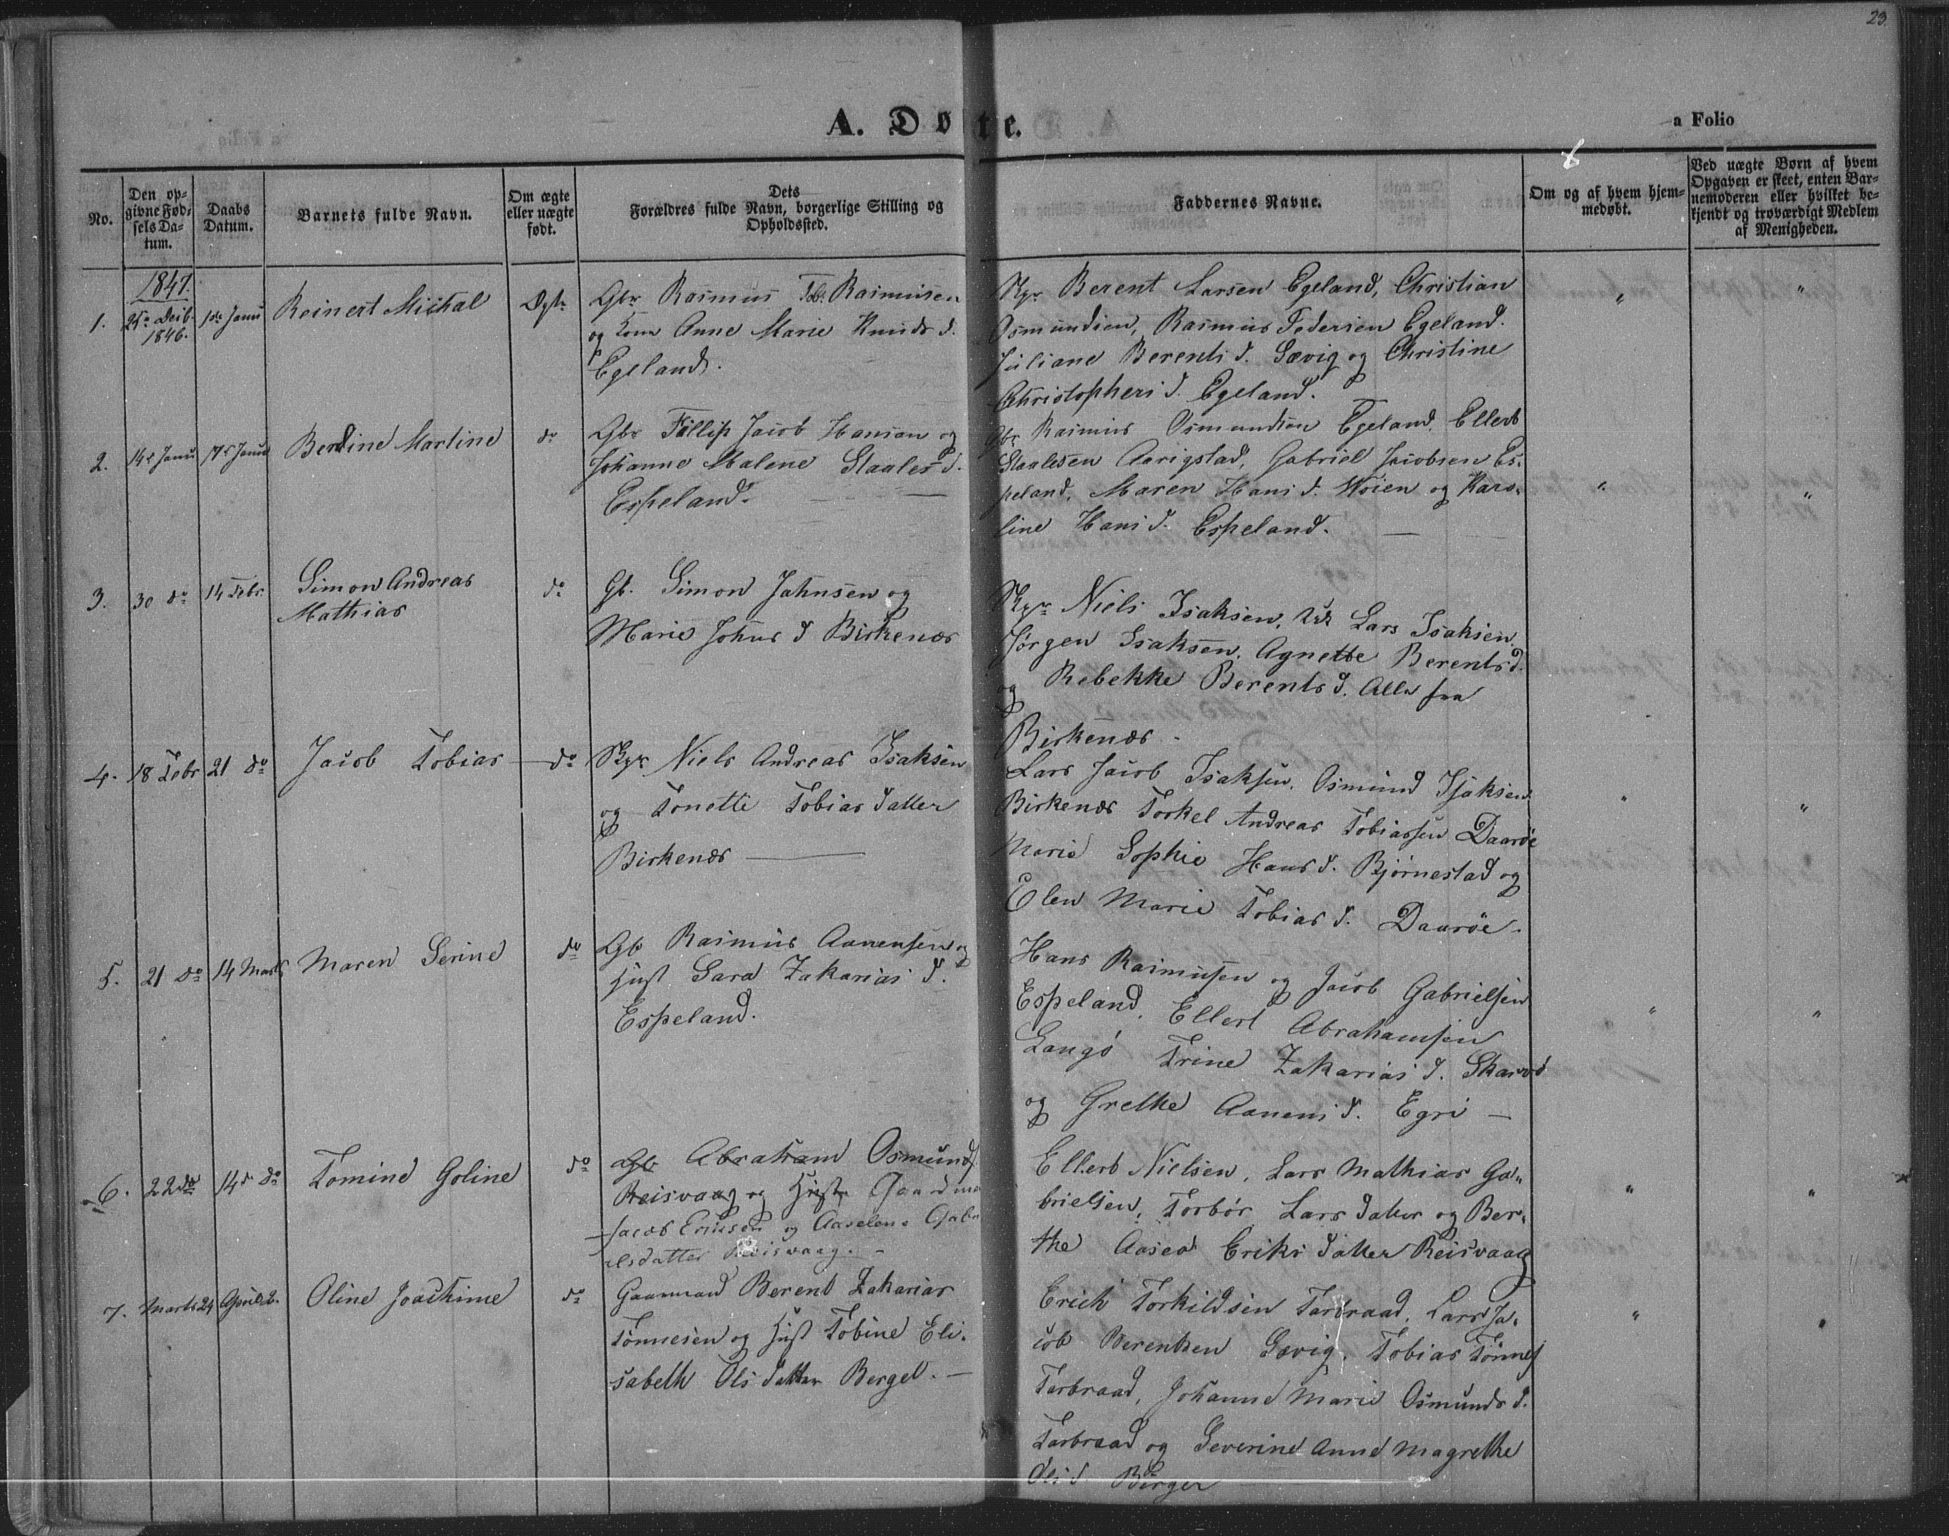 23.
A. Døbte.
a Folio
No.
Den op-
givne Fød-
sels Da-
tum.
Daabs
Datum.
Barnets fulde Navn.
Om ægte
eller uægte
født.
Dets
Forældres fulde Navn, borgerlige Stilling og
Opholdssted.
Faddernes Navne.
Om og af hvem hjem-
medøbt.
Ved uægte Børn af hvem
Opgaven er skeet, enten Bar-
nemoderen eller hvilket be-
kjendt og troværdigt Medlem
af Menigheden.
1847.
1.
25de Decb.
1846.
1de Janu
Reinert Michal
Ægte
Gbr Rasmus Tob. Rasmusen
og Kone Anne Marie Knuds d.
Egeland.
Berent Larsen Egeland, Christian
Osmundsen, Rasmus Pedersen Egeland.
Juliane Berents d. Sævig og Christine
Christophers d. Egeland.
"
"
2.
14d Janu
17d Janu
Berdine Martine
do
Gbr Fillip Jacob Hansen og
Johanne Malene Staales d.
Espeland.
Gbr Rasmus Osmundsen Egeland, Ellert
Staalesen Aarigstad, Gabriel Jacobsen Es-
peland, Maren Hans d. Moien og Karo-
line Hans d. Espeland.
"
"
3.
30 do
14 Febr.
Simon Andreas
Mathias
do
Gb. Simon Jahnsen og
Marie Johns d Birkenæs
Niels Isaksen, Lars Isaksen
Jørgen Isaksen, Agnette Berentsd.
og Rebekke Berents d. Alle fra
Birkenæs.
4.
18 Febr
21 do
Jacob Tobias
do
Niels Andreas Isaksen
og Tonette Tobias datter
Birkenæs
Lars Jacob Isaksen, Osmund Isaksen
Birkenæs Torkel Andreas Tobiassen Daarøe
Marie Sophie Hans d. Bjørnestad og
Elen Marie Tobias d. Daarøe.
"
"
5.
21 do
14 Marts
Maren Serine
do
Gb Rasmus Aanensen og
Hust Sara Zakarias d.
Espeland.
Hans Rasmusen og Jacob Gabrielsen
Espeland, Ellert Abrahamsen
Langø Trine Zakarias d. Skarvø
og Grethe Aanens d. Egri
"
"
6.
22 do
14d do
Tomine Goline
do
Gb Abraham Osmunds
Reisvaag og Hustr Gaardma
Jacob Ericsen og Aaselene Gabri
elsdatter Reisvaag.
Ellert Nielsen, Lars Mathias Ga-
brielsen, Torbør Lars datter og Ber-
the Aasea Eriks datter Reisvaag
"
"
7.
Marts 24
April 2.
Oline Joachime
do
Gaarmand Berent Zakarias
Tønnesen og Hust Tobine Eli-
sabeth Ols datter Berge.
Erich Torkildsen Tarbraad, Lars Ja-
cob Berentsen Sævig, Tobias Tønnes
Tarbraad, Johanne Marie Osmunds d.
Tarbraad og Severine Anne Magrethe
Ols d Berger
"
"